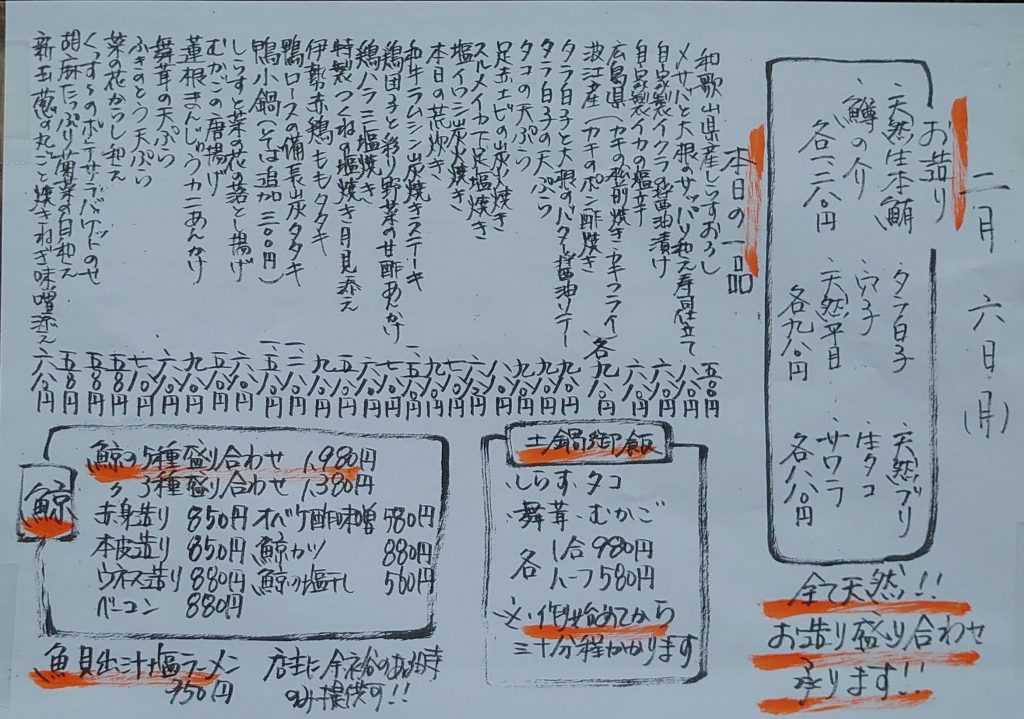 二月 六日(月)
お造り
天然生本鮪
鱒の介
各一、二八〇円
タラ白子
穴子
天然平目
各九八〇円
天然ブリ
生タコ
サワラ
各八八〇円
全て天然!!
お造り盛り合わせ
承ります!!
本日の一品
和歌山県産しらすおろし 五八〇円
〆サバと大根のサッパリ和え寿司仕立て 八八〇円
自家製イクラ醤油漬け
自家製イカの塩辛 六八〇円
広島県(カキの松前焼き・カキフライ
波江産(カキのポン酢焼き 各九八〇円
タラ白子と大根のバター醤油ソテー 九八〇円
タラ白子の天ぷら 九八〇円
タコの天ぷら
足赤エビの炭火焼き
スルメイカ下足塩焼き
塩イワシ炭火焼き
本日の荒炊き
和牛ラムシン炭焼きステーキ
鶏団子と彩り野菜の甘酢あんかけ
鶏ハラミ塩焼き
特製つくねの塩焼き月見添え
伊勢赤鶏ももタタキ 九八〇円
鴨ロースの備長炭タタキ
鴨小鍋(そばは追加三〇〇円)
しらすと菜の花の落とし揚げ
むかごの唐揚げ
蓮根まんじゅうカニあんかけ 九八〇円
舞茸の天ぷら 六八〇円
ふきのとう天ぷら 七八〇円
菜の花からし和え 五八〇円
くっすゞのポテサラバケットのせ 五八〇円
胡麻たっぷり菊菜の白和え 五八〇円
新玉葱の丸ごと焼きねぎ味噌添え 六八〇円
土鍋御飯
・しらす・タコ
・舞茸・むかご
各 1合980円
ハーフ580円
※作り始めてから
三十分程かかります
鯨
鯨の5種盛り合わせ 1,980円
〃 3種盛り合わせ 1,380円
赤身造り 850円 オバケ酢味噌 580円
本皮造り 850円 鯨カツ 880円
ウネス造り 880円 鯨の塩干し 560円
ベーコン 880円
魚貝出汁塩ラーメン 950円
店主に余裕のある時
のみ提供す!!